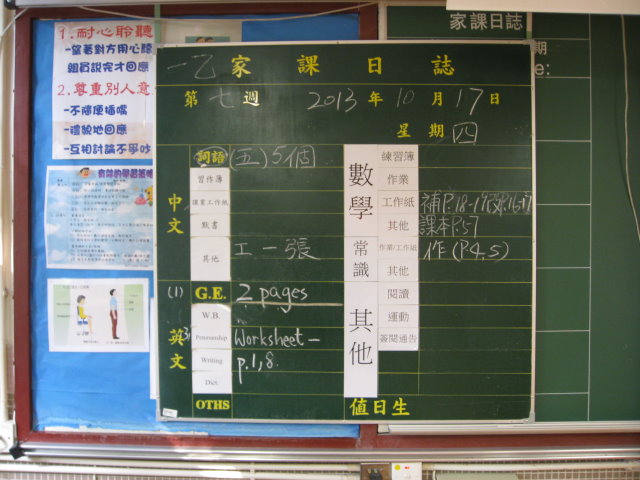 1. 耐心聆聽
-望著對方用心聽
組員說完才回應
2. 尊重別人意
-不隨便插嘴
-禮貌地回應
-互相討論不爭吵
家課日誌
期
e:
一乙 家課日誌
第七週 2013年10月17日
星期四
中文
詞語 (五)5個
習作簿
謄業工作紙
默書
其他 工一張
英文
(1) G.E. 2 pages
W.B.
Penmanship Worksheet-
Writing p.1,8.
Dict.
OTHS
數學
練習簿
作業
工作紙 補P.18-19
其他 課本P.57
常識
作業/工作紙 作(P.4,5)
其他
其他
閱讀
運動
簽閱通告
值日生